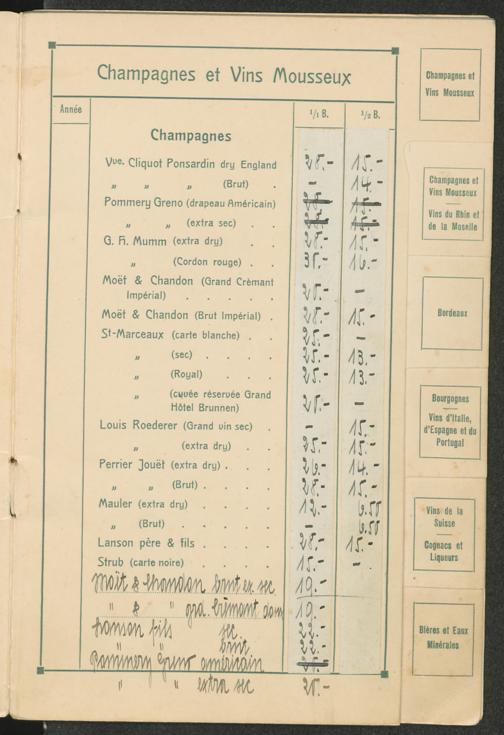 Champagnes et Vins Mousseux
Année 1/1 B. 1/2 B.
Champagnes
Vve. Cliquot Ponsardin dry England 28.- 15.-
„ „ „ (Brut) . - 14.-
Pommery Greno (drapeau Américain)
„ „ (extra sec) . .
G. H. Mumm (extra dry) . . 28.- 15.-
„ (Cordon rouge) . . 31.- 16.-
Moët & Chandon (Grand Crèmant
Impérial) . . . . . -
Moët & Chandon (Brut Impérial) . 28.- 15.-
St-Marceaux (carte blanche) . . 25.- -
„ (sec) . . . . 25.- 13.-
„ (Royal) . . . . 25.- 13.-
„ (cuvée réservée Grand
Hôtel Brunnen) -
Louis Roederer (Grand vin sec) . - 15.-
„ (extra dry) . . . 25.- 15.-
Perrier Jouët (extra dry) . . . 26.- 14.-
„ „ (Brut) . . . . 28.- 15.-
Mauler (extra dry) . . . . 12.- 6.50
„ (Brut) . . . . . - 6.50
Lanson père & fils . . . . 28.- 15.-
Strub (carte noire) . . . . 15.- -
Moët & Chandon brut ex sec 19.-
„ & „ grd. Crèmant 19.-
Lanson fils sec 22.-
„ brut 22.-
Pommery Greno américain
„ „ extra sec
Champagnes et
Vins Mousseux
Champagnes et
Vins Mousseux
Vins du Rhin et
de la Moselle
Bordeaux
Bourgognes
Vins d'Italie,
d'Espagne et du
Portugal
Vins de la
Suisse
Cognacs et
Liqueurs
Bières et Eaux
Minérales